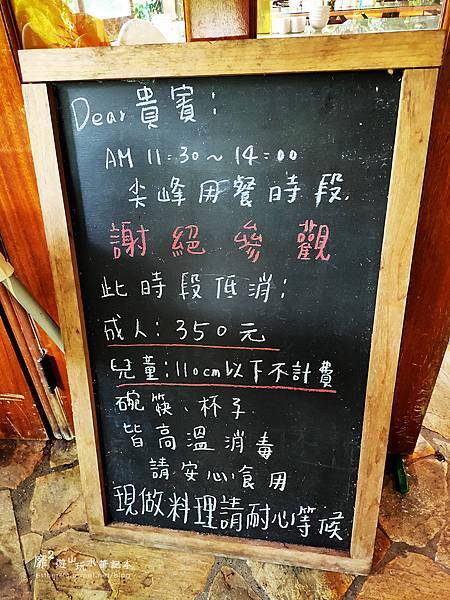 Dear 貴賓:
AM 11:30~14:00
尖峰用餐時段.
謝絕參觀
此時段低消:
成人:350元
兒童:110cm以下不計費
碗筷、杯子
皆高溫消毒
請安心食用
現做料理請耐心等候